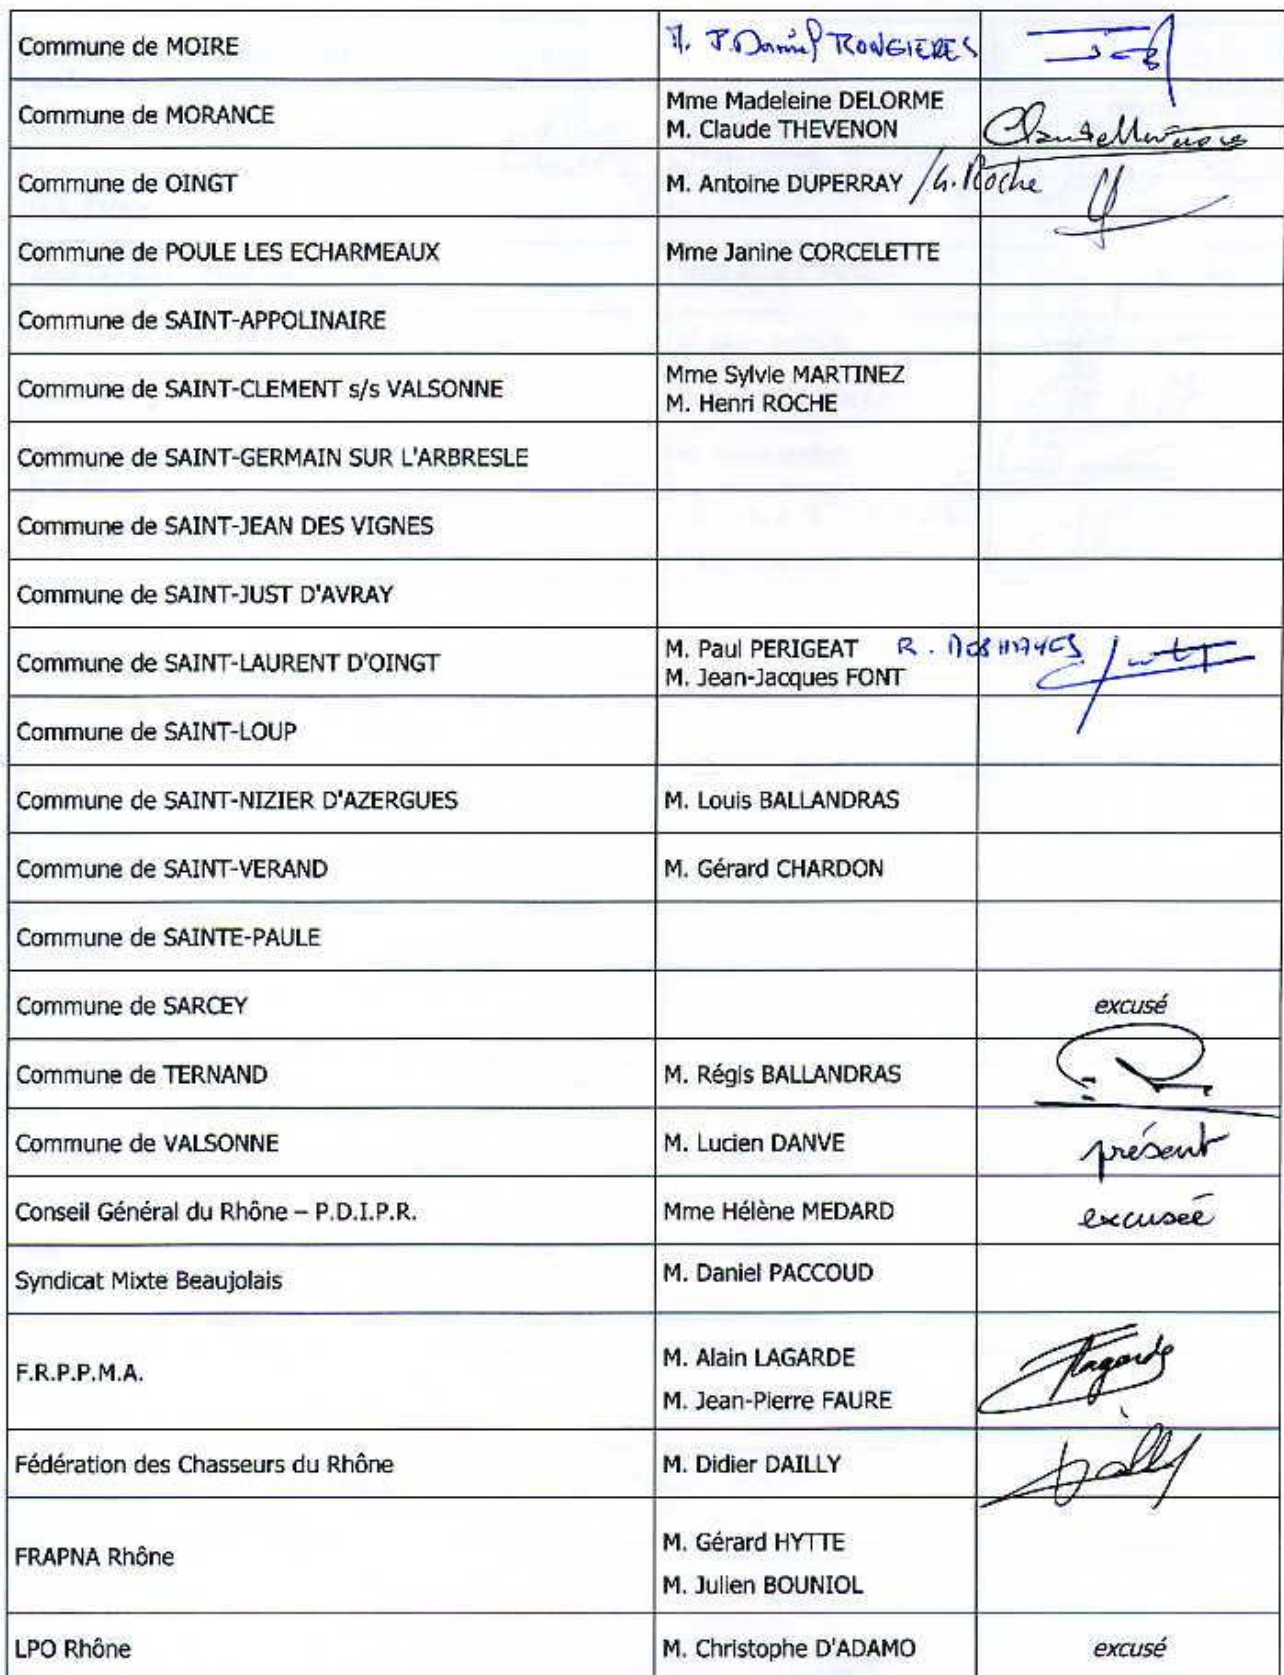 Commune de MOIRE
M. J. Daniel RONGIERES
Commune de MORANCE
Mme Madeleine DELORME
M. Claude THEVENON
Commune de OINGT
M. Antoine DUPERRAY / G. Roche
Commune de POULE LES ECHARMEAUX
Mme Janine CORCELETTE
Commune de SAINT-APPOLINAIRE
Commune de SAINT-CLEMENT s/s VALSONNE
Mme Sylvie MARTINEZ
M. Henri ROCHE
Commune de SAINT-GERMAIN SUR L'ARBRESLE
Commune de SAINT-JEAN DES VIGNES
Commune de SAINT-JUST D'AVRAY
Commune de SAINT-LAURENT D'OINGT
M. Paul PERIGEAT R. DESHAYES
M. Jean-Jacques FONT
Commune de SAINT-LOUP
Commune de SAINT-NIZIER D'AZERGUES
M. Louis BALLANDRAS
Commune de SAINT-VERAND
M. Gérard CHARDON
Commune de SAINTE-PAULE
Commune de SARCEY
excusé
Commune de TERNAND
M. Régis BALLANDRAS
Commune de VALSONNE
M. Lucien DANVE
présent
Conseil Général du Rhône – P.D.I.P.R.
Mme Hélène MEDARD
excusée
Syndicat Mixte Beaujolais
M. Daniel PACCOUD
F.R.P.P.M.A.
M. Alain LAGARDE
M. Jean-Pierre FAURE
Lagarde
Fédération des Chasseurs du Rhône
M. Didier DAILLY
Dailly
FRAPNA Rhône
M. Gérard HYTTE
M. Julien BOUNIOL
LPO Rhône
M. Christophe D'ADAMO
excusé